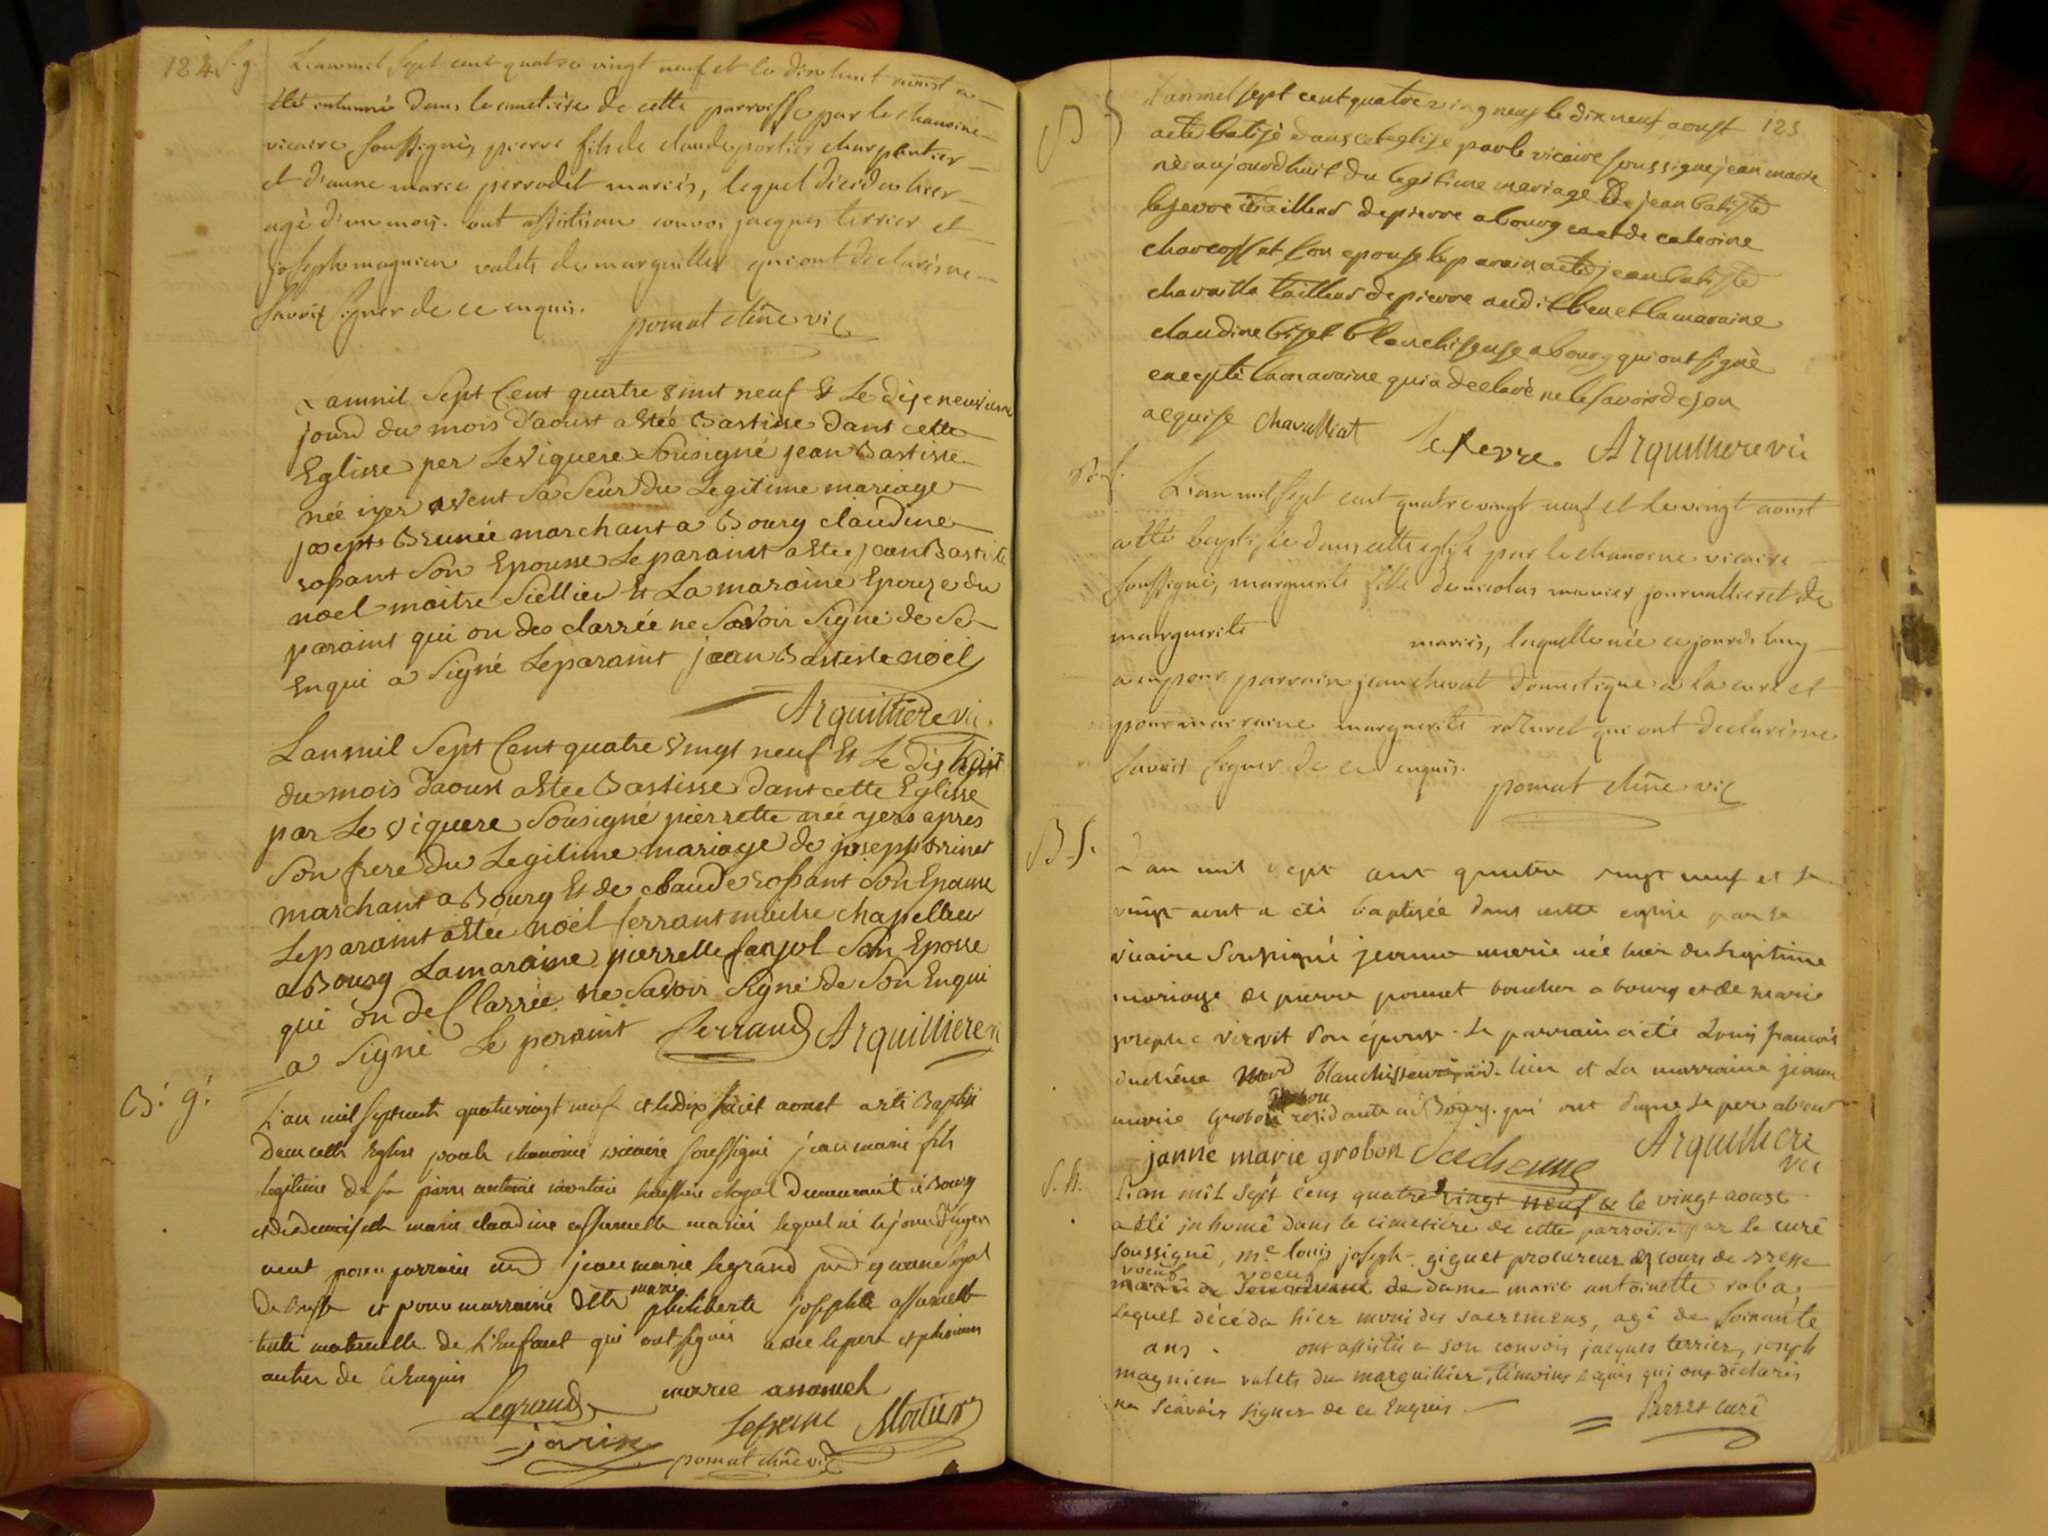 124 S. g.
L'an mil sept cent quatre vingt neuf et le dix huit aoust a
été inhumé dans le cimetière de cette parroisse par le chanoine
vicaire soussigné, pierre fils de claude portier charpentier
et d'anne marie perrodet mariés, lequel décéda hier
agé d'un mois. ont assisté au convoi jacques terrier et
joseph magnien valets de marguillier qui ont déclaré ne
savoir signer de ce enquis.
pomat chne vic
Lanmil Sept Cent quatre vint neuf Et Le
jourd du mois d'aoust a Etée Bastisse Dant cette
Eglisse per Le viguere Sousigné jean Bastisse
née iyer avent Sa Seur du Legitime mariage
josept Brunée marchant a Bourg claudine
rossant Son Epousse Le paraint a Etée jean Bastiste
noel maitre Siellieu Et La maraine Epouze du
paraint qui on des clarrée ne Savoir Signé de Se
Enqui a Signé Leparaint jean Bastiste noël
Arquilliere vic.
Lanmil Sept Cent quatre vingt neuf Et Le dis huit
du mois d'aoust a Etée Bastisse Dant cette Eglisse
par Le viguere Sousigné pierrette née yere apres
Son frere du Legitime mariage de joseph
marchant a Bourg Et de claude rossant Son Epouse
Le paraint a Etée noël ferrant maitre chapellieu
a Bourg La maraine pierrette Son Eposse
qui on desClarrée ne Savoir Signé de Son Enqui
a Signé Le peraint ferrand Arquilliere
B. g.
L'an mil sept cent quatre vingt neuf et le dix huit aoust a été Baptisé
dans cette Eglise par le chanoine vicaire soussigné jean marie fils
legitime de sr pierre antoine huissier royal demeurant à Bourg
et de demoiselle marie claudine assamelle mariés lequel né le jour d'hyer
aeut pour parrain jean marie legrand
et pour marraine Dlle marie philiberte josephte assamelle
tante maternelle de L'Enfant qui ont signés avec le pere et plusieurs
autres de ce Enquis
Legrand marie assamel
javin Mortier
pomat chne vic
125
B g
L'an mil sept cent quatre ving neuf le dix neuf aoust
a eté batisé dans cet eglise par le vicaire soussigné jean marie
né aujourdhuit du legitime mariage de jean batiste
lefevre tailleur de pierre a bourg et de caterine
son epouse le parain a eté jean batiste
tailleur de pierre audit lieu et la maraine
claudine blanchiseuse a bourg qui ont signé
excepté la maraine qui a declaré ne le savoir de son
requise chavalliat lefevre Arquilliere vic
B. f.
L'an mil sept cent quatre vingt neuf et le vingt aoust
a été baptisée dans cette eglise par le chanoine vicaire
soussigné, marguerite fille de nicolas manier journallier et de
marguerite mariés, laquelle née ce jourdh'huy
a eu pour parrain jean chevat domestique a la cure et
pour marraine marguerite qui ont declaré ne
savoir signer de ce enquis.
pomat chne vic
B f.
L'an mil sept cent quatre vingt neuf et le
vingt aout a été baptisée dans cette eglise par le
vicaire soussigné jeanne marie née hier du legitime
mariage de pierre pomet boucher a bourg et de marie
josephe son épouse. le parrain a été Louis francois
duchêne blanchisseur lieu et La marraine jeanne
marie grobon résidante à Bourg. qui ont signé le pere absent
janne marie grobon Duchenne Arquilliere
vic
S. h.
L'an mil sept cens quatre vingt neuf & le vingt aoust
a été inhumé dans le cimetière de cette parroisse par le curé
soussigné, me louis joseph giguet procureur ez cours de Bresse
voeuf de dame marie antoinette roba,
lequel décéda hier muni des sacremens, agé de soixante
ans. ont assisté a son convoi jacques terrier, joseph
magnien valets du marguillier, témoins requis qui ont déclaré
ne sçavoir signer de ce Enquis
Parret curé